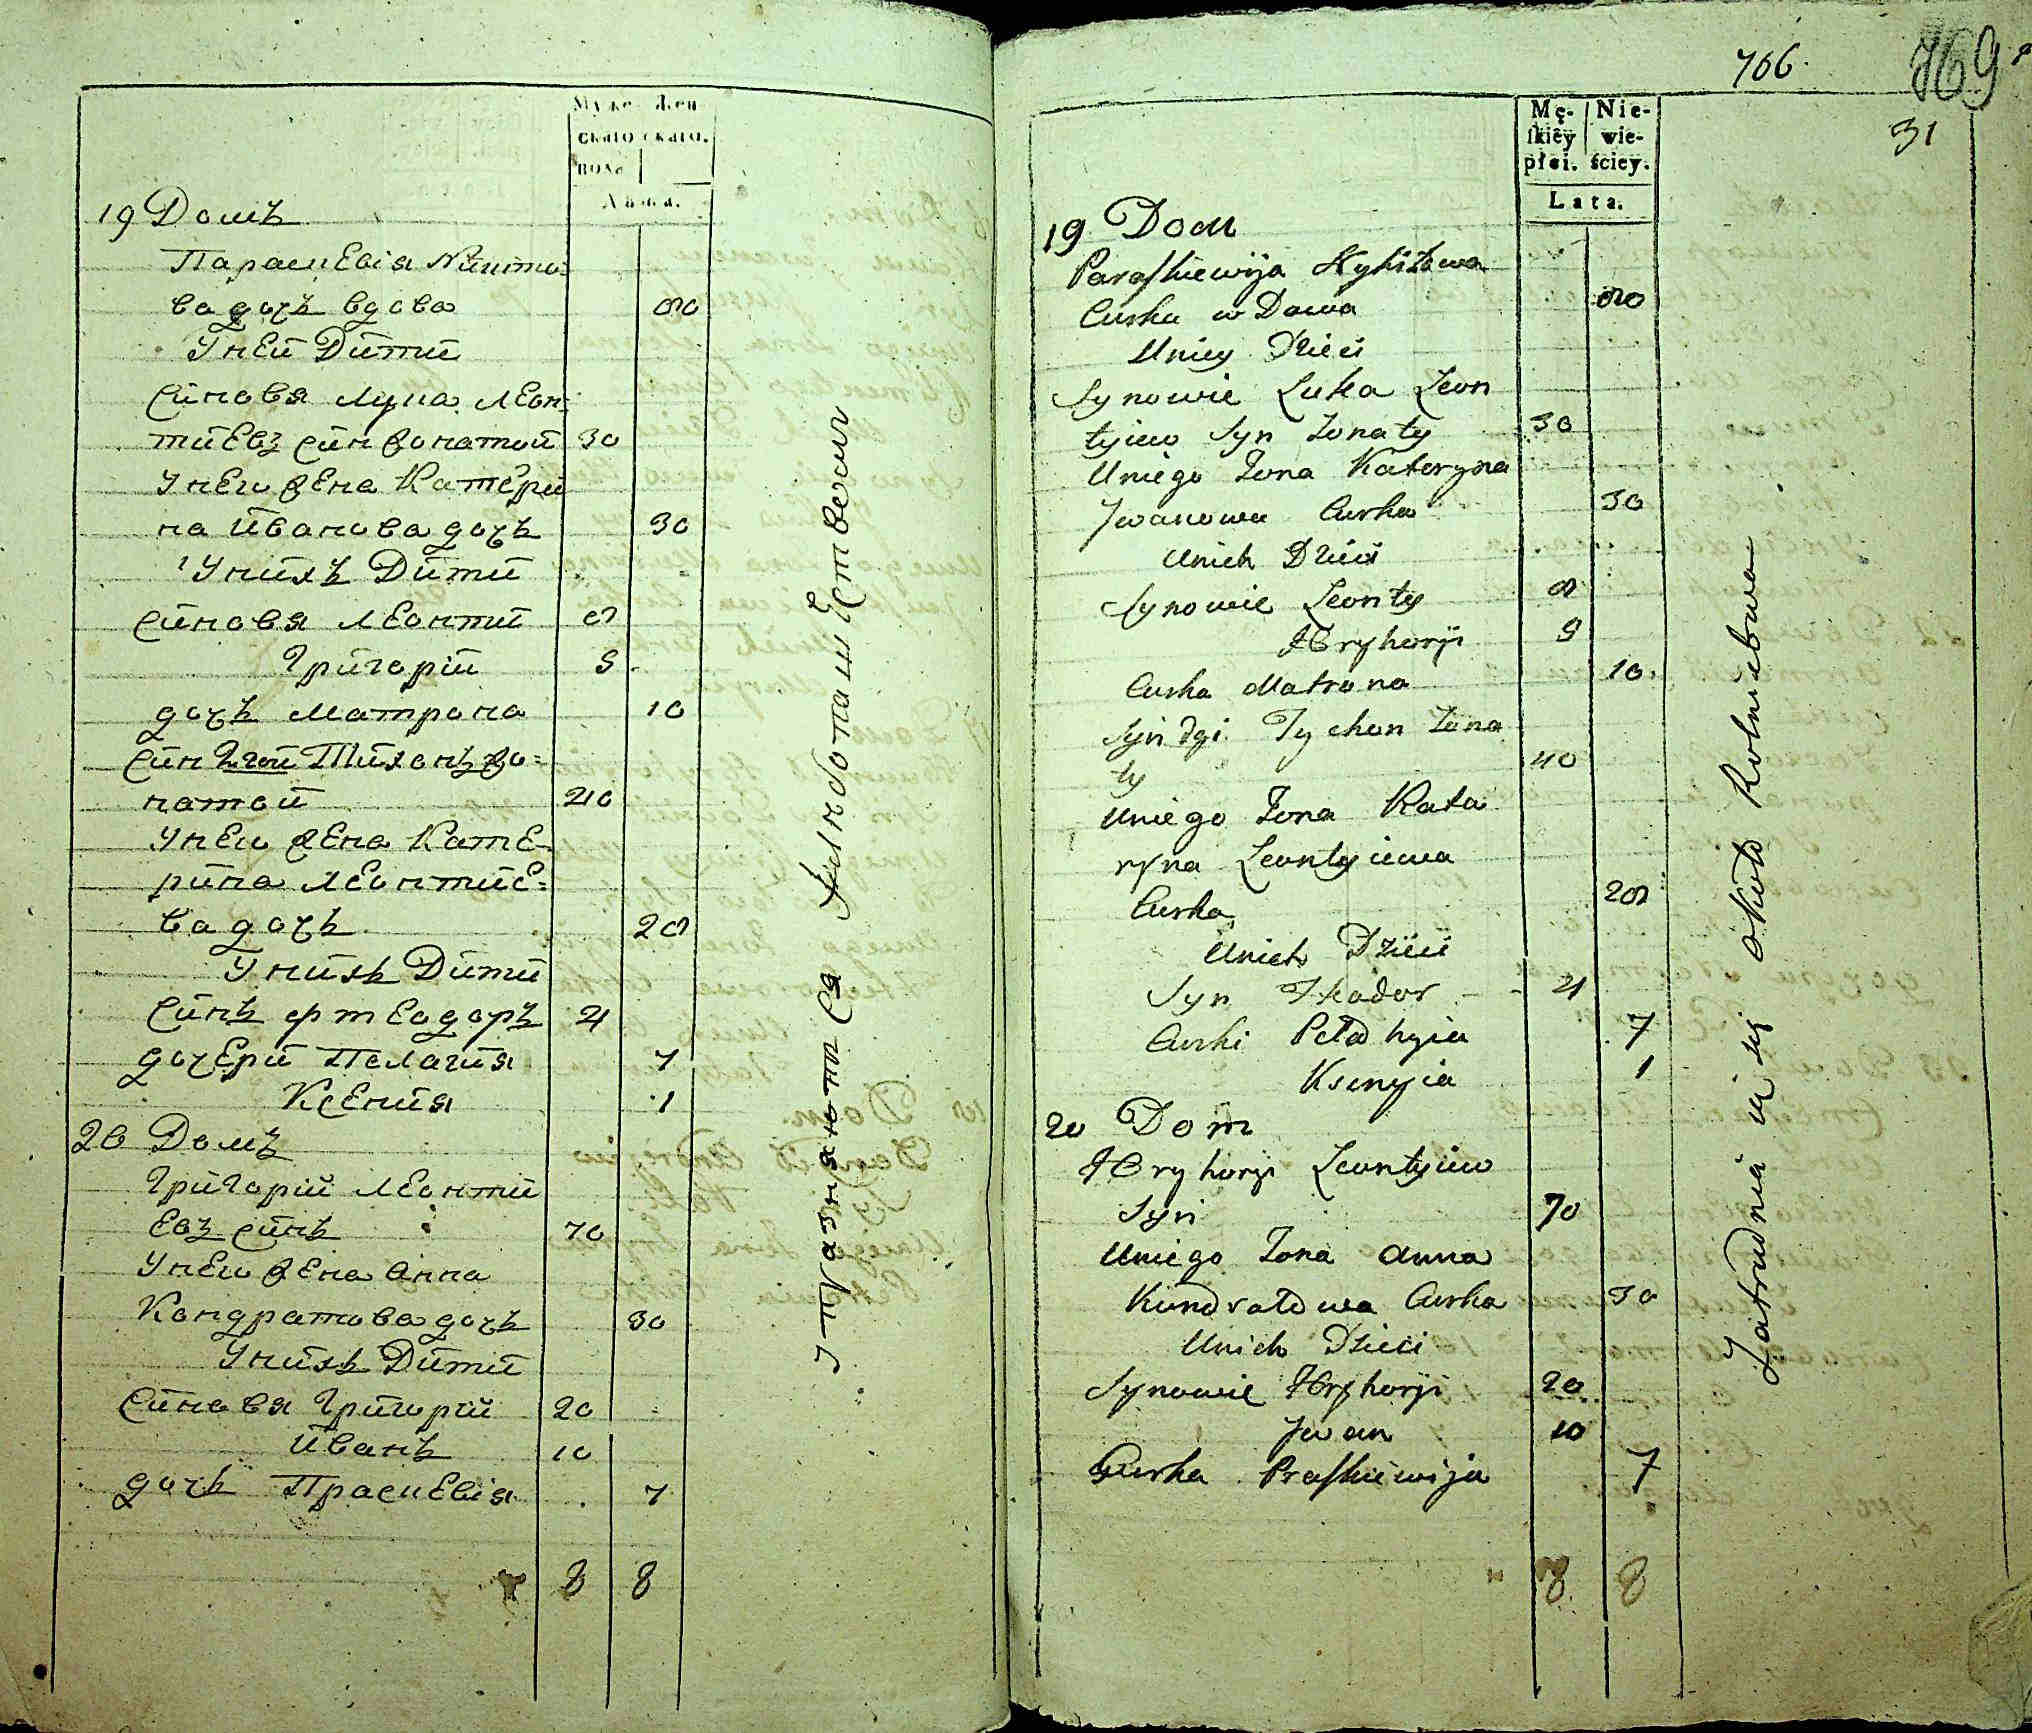 Муже Жен
скаго скаго.
пола
Лѣта.
19 Домъ
Параскевія Никито-
ва дочъ вдова 80
У неи Дити
Синовя Лука Леон-
тиевъ син жонатой 30
У нею жена Катери
на Иванова дочъ 30
У нихъ Дити
Синовя Леонтий 8
Григорій 5
дочъ Матрона 10
Син 2гой Тихонъ жо-
натой 40
У нею жена Кате-
рина Леонтие-
ва дочъ 28
У нихъ Дити
Синъ Фтеодоръ 4
дочери Пелагия 7
Ксения 1
20 Домъ
Григорій Леонтий
евъ синъ 70
У нею жена Анна
Кондратова дочъ 30
У нихъ Дити
Синовя Григорий 20
Иванъ 10
дочъ Праскевія 7
8 8
упражнаются
766.
769
31
Mę- Nie-
skiéy wie-
płci. ściey.
Lata.
19 Dom
Paraskiewija Nykitowa
Curka w Dowa 80
Uniey Dzieci
Synowie Luka Leon
tyiew Syn Żonaty 30
Uniego Żona Kateryna
Iwanowa Curka 30
Unich Dzieci
Synowie Leonty 8
Hryhoryi 5
Curka Matrona 10.
Syn dgi Tychon Żona
ty 40
Uniego Żona Kata
ryna Leontyiewa
Curka 28
Unich Dzieci
Syn Fteodor 4
Curki Pelahyia 7
Ksenyia 1
20 Dom
Hryhoryi Leontyiew
Syn 70
Uniego Żona Anna
Kondratowa Curka 30
Unich Dzieci
Synowie Hryhoryi 20
Iwan 10
Curka Praskiewija 7
8 8
Zatrudnia ią się około Rolnictwa